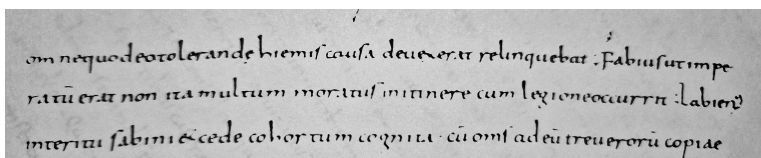 om nequodeotolerandę hiemis causa devexerat relinquebat ; Fabius ut impe
ratū erat non ita multum moratus initinere cum legioneoccurrit ; labienꝰ
interitu sabini & cede cohortum cognita · cū oms̄ ad eū treverorū copiae